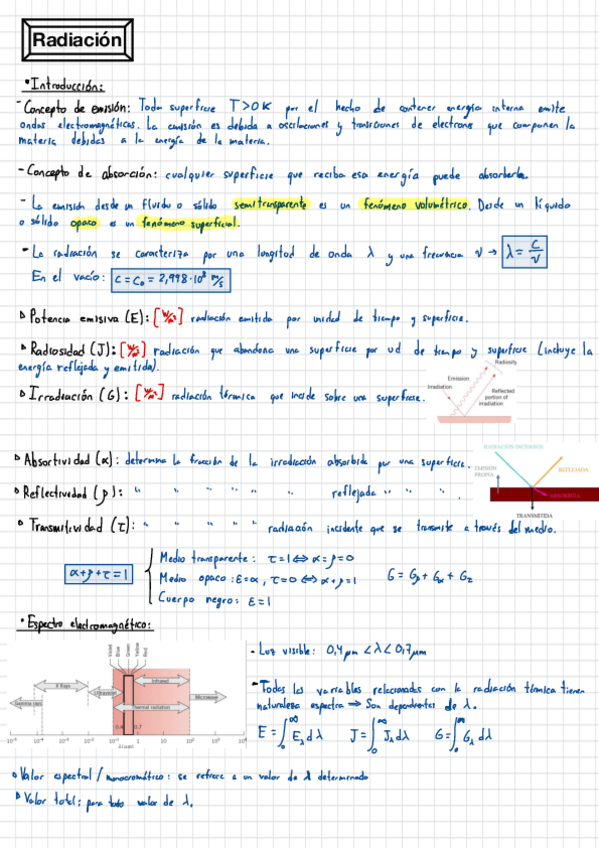 Radiación
• Introducción:
- Concepto de emisión: Toda superficie T>0K por el hecho de contener energía interna emite
ondas electromagnéticas. La emisión es debida a oscilaciones y transiciones de electrons que componen la
materia debidas a la energía de la materia.
- Concepto de absorción: cualquier superficie que reciba esa energía puede absorberla.
- La emisión desde un fluido o sólido semitransparente es un fenómeno volumétrico. Desde un líquido
o sólido opaco es un fenómeno superficial.
- La radiación se caracteriza por una longitud de onda λ y una frecuencia ν → λ = c/ν
En el vacío: c = c₀ = 2,998·10⁸ m/s
▹ Potencia emisiva (E): [W/m²] radiación emitida por unidad de tiempo y superficie.
▹ Radiosidad (J): [W/m²] radiación que abandona una superficie por ud de tiempo y superficie (incluye la
energía reflejada y emitida).
Radiosity
Emission
Irradiation
Reflected
portion of
irradiation
▹ Irradiación (G): [W/m²] radiación térmica que incide sobre una superficie.
▹ Absortividad (α): determina la fracción de la irradiación absorbida por una superficie.
▹ Reflectividad (ρ): " " " " " " reflejada " " " .
▹ Transmitividad (τ): " " " " " radiación incidente que se transmite a través del medio.
RADIACION INCIDENTE
EMISIÓN
PROPIA
REFLEJADA
ABSORBIDA
TRANSMITIDA
α+ρ+τ=1
Medio transparente: τ=1⇔α=ρ=0
Medio opaco: ε=α, τ=0⇔α+ρ=1
Cuerpo negro: ε=1
G = Gρ + Gα + Gτ
• Espectro electromagnético:
Violet
Blue
Green
Yellow
Red
Infrared
X Rays
Ultraviolet
Microwave
Gamma rays
Thermal radiation
0.4
0.7
10⁻⁵ 10⁻⁴ 10⁻³ 10⁻² 10⁻¹ 1 10 10² 10³ 10⁴
λ (μm)
- Luz visible: 0,4 μm < λ < 0,7 μm
- Todas las variables relacionadas con la radiación térmica tienen
naturaleza espectral ⇒ Son dependientes de λ.
E = ∫₀^∞ E_λ dλ J = ∫₀^∞ J_λ dλ G = ∫₀^∞ G_λ dλ
▹ Valor espectral / monocromático: se refiere a un valor de λ determinado
▹ Valor total: para todo valor de λ.